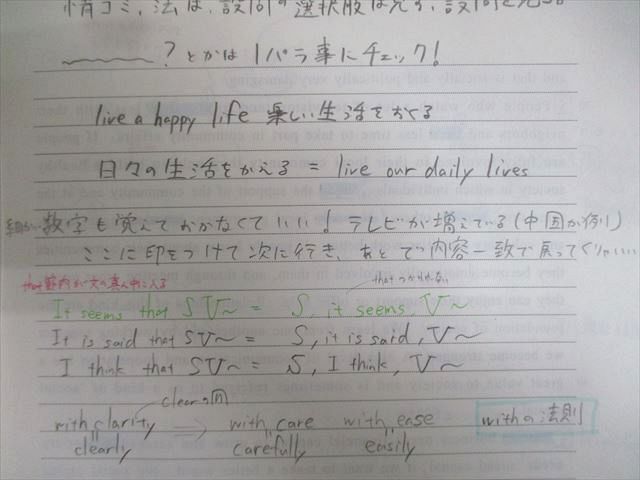 情コミ、法は、設問の選択肢は見ず、設問を見る
〜〜〜? とかは 1パラ事にチェック!
live a happy life 楽しい生活をおくる
日々の生活をかえる = live our daily lives
細かい数字も覚えておかなくていい! テレビが増えている(中国が例り)
ここに印をつけて次に行き、あとで内容一致で戻ってくりゃいい
that節内が文の真ん中に入る
that つかわれない
It seems that SV〜 = S, it seems, V〜
It is said that SV〜 = S, it is said, V〜
I think that SV〜 = S, I think, V〜
clearの名
with clarity → with care with ease withの法則
clearly carefully easily